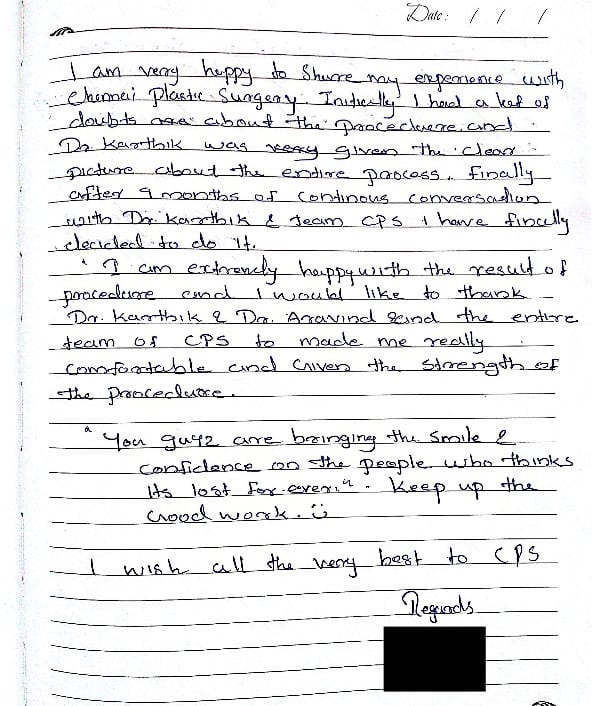 Date: / / /
I am very happy to Shure my experience with
Chennai Plastic Surgery. Initically I had a lot of
doubts are about the procedure. and
Dr Karthik was very given the clear
picture about the entire process. Finally
after 9 months of continous conversation
with Dr. Karthik & team CPS I have finally
decided to do it.
I am extremly happy with the result of
procedure and I would like to thank
Dr. Karthik & Dr. Aravind and the entire
team of CPS to made me really
comfortable and Given the Strength of
the procedure.
" You guyz are bringing the smile &
confidence on the people who thinks
its lost for-ever:". Keep up the
Good work. :)
I wish all the very best to CPS
Regards